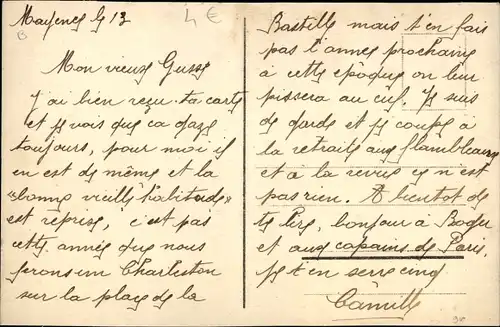 Mayence le 13
4 €
B
Mon vieux Gusse
J'ai bien reçu ta carte
et je vois que ça gaze
toujours, pour moi il
en est de même et la
"bonne vieille habitude"
est reprise, c'est pas
cette année que nous
ferons un Charleston
sur la place de la
Bastille mais t'en fais
pas l'année prochaine
à cette époque on leur
pissera au cul. Je suis
de garde et je coupe à
la retraite aux flambeaux
et à la revue ce n'est
pas rien. A bientot de
te lire, bonjour à Roger
et aux copains de Paris,
je t'en serre cinq
Camille